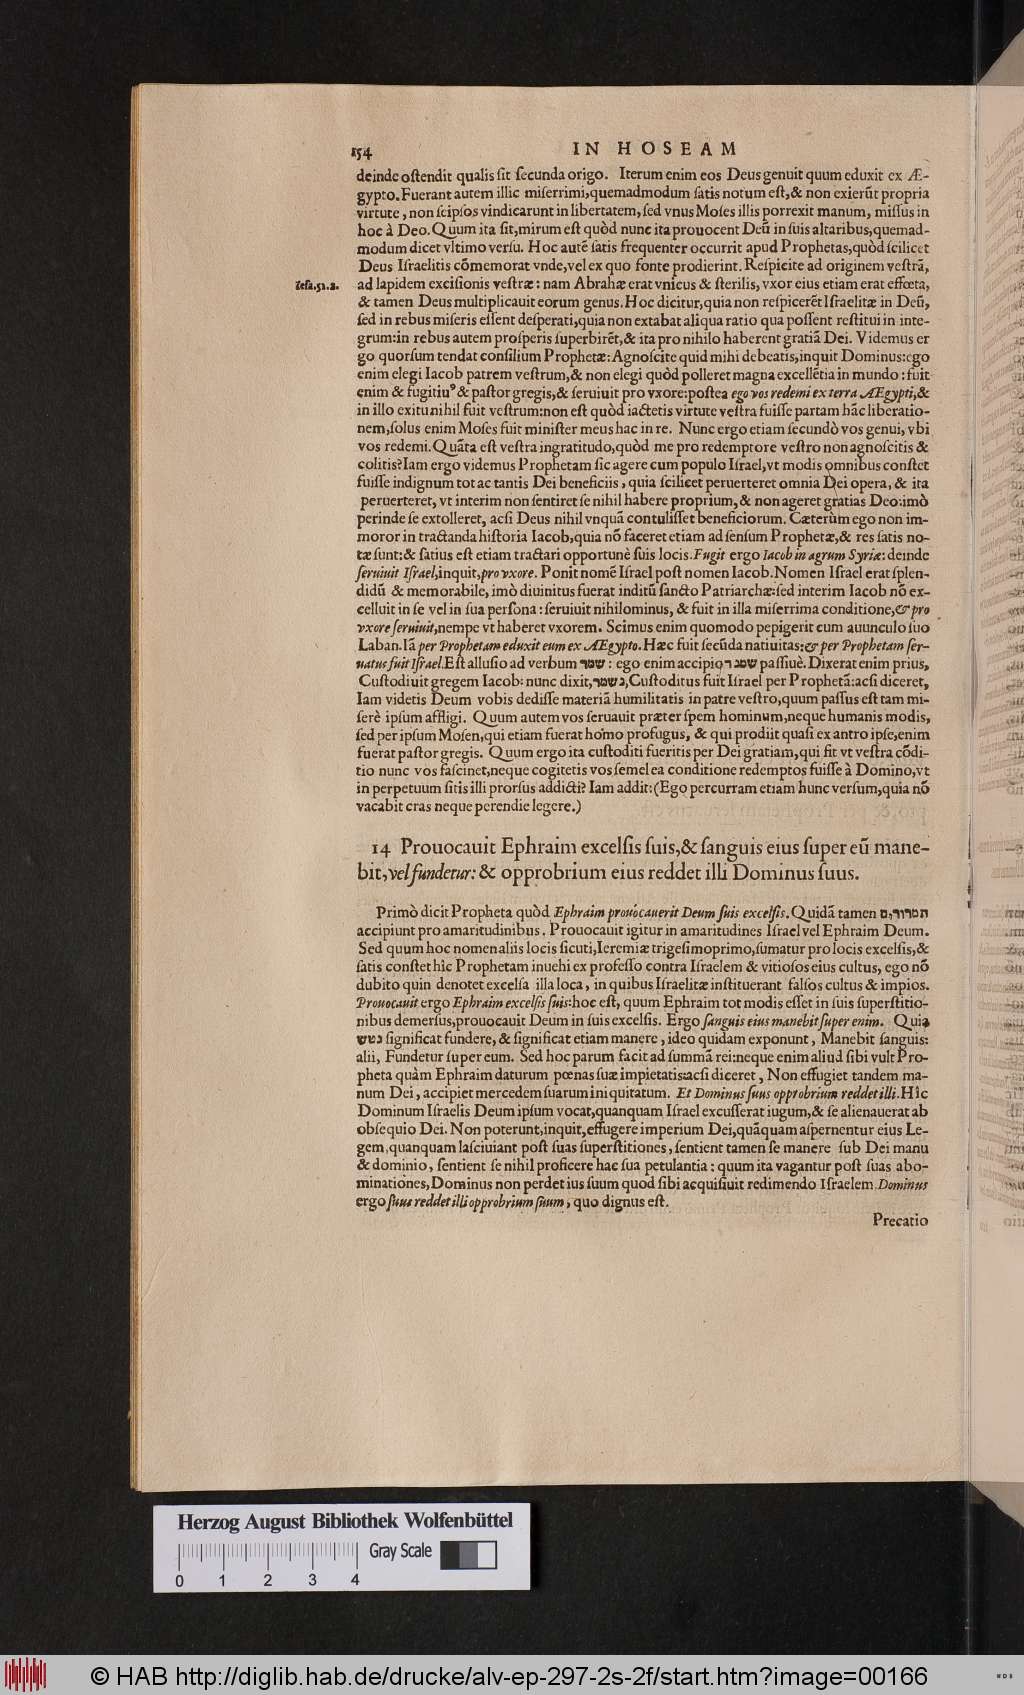 154 IN HOSEAM
deinde oſtendit qualis ſit ſecunda origo. Iterum enim eos Deus genuit quum eduxit ex Æ-
gypto. Fuerant autem illic miſerrimi, quemadmodum ſatis notum eſt, & non exierūt propria
virtute, non ſeipſos vindicarunt in libertatem, ſed vnus Moſes illis porrexit manum, miſſus in
hoc à Deo. Quum ita ſit, mirum eſt quòd nunc ita prouocent Deū in ſuis altaribus, quemad-
modum dicet vltimo verſu. Hoc autē ſatis frequenter occurrit apud Prophetas, quòd ſcilicet
Deus Iſraelitis cōmemorat vnde, vel ex quo fonte prodierint. Reſpicite ad originem veſtrā,
Ieſa.51.2. ad lapidem exciſionis veſtræ: nam Abrahæ erat vnicus & ſterilis, vxor eius etiam erat effœta,
& tamen Deus multiplicauit eorum genus. Hoc dicitur, quia non reſpicerēt Iſraelitæ in Deū,
ſed in rebus miſeris eſſent deſperati, quia non extabat aliqua ratio qua poſſent reſtitui in inte-
grum: in rebus autem proſperis ſuperbirēt, & ita pro nihilo haberent gratiā Dei. Videmus er
go quorſum tendat conſilium Prophetæ: Agnoſcite quid mihi debeatis, inquit Dominus: ego
enim elegi Iacob patrem veſtrum, & non elegi quòd polleret magna excellētia in mundo: fuit
enim & fugitiuꝰ & paſtor gregis, & ſeruiuit pro vxore: poſtea ego vos redemi ex terra Ægypti, &
in illo exitu nihil fuit veſtrum: non eſt quòd iactetis virtute veſtra fuiſſe partam hāc liberatio-
nem, ſolus enim Moſes fuit miniſter meus hac in re. Nunc ergo etiam ſecundò vos genui, vbi
vos redemi. Quāta eſt veſtra ingratitudo, quòd me pro redemptore veſtro non agnoſcitis &
colitis? Iam ergo videmus Prophetam ſic agere cum populo Iſrael, vt modis omnibus conſtet
fuiſſe indignum tot ac tantis Dei beneficiis, quia ſcilicet peruerteret omnia Dei opera, & ita
peruerteret, vt interim non ſentiret ſe nihil habere proprium, & non ageret gratias Deo: imò
perinde ſe extolleret, acſi Deus nihil vnquā contuliſſet beneficiorum. Cæterùm ego non im-
moror in tractanda hiſtoria Iacob, quia nō faceret etiam ad ſenſum Prophetæ, & res ſatis no-
tæ ſunt: & ſatius eſt etiam tractari opportunè ſuis locis. Fugit ergo Iacob in agrum Syriæ: deinde
ſeruiuit Iſrael, inquit, pro vxore. Ponit nomē Iſrael poſt nomen Iacob. Nomen Iſrael erat ſplen-
didū & memorabile, imò diuinitus fuerat inditū ſancto Patriarchæ: ſed interim Iacob nō ex-
celluit in ſe vel in ſua perſona: ſeruiuit nihilominus, & fuit in illa miſerrima conditione, & pro
vxore ſeruiuit, nempe vt haberet vxorem. Scimus enim quomodo pepigerit cum auunculo ſuo
Laban. Iā per Prophetam eduxit eum ex Ægypto. Hæc fuit ſecūda natiuitas: & per Prophetam ſer-
uatus fuit Iſrael. Eſt alluſio ad verbum שמר: ego enim accipio שמר paſſiuè. Dixerat enim prius,
Cuſtodiuit gregem Iacob: nunc dixit, נשמר, Cuſtoditus fuit Iſrael per Prophetā: acſi diceret,
Iam videtis Deum vobis dediſſe materiā humilitatis in patre veſtro, quum paſſus eſt tam mi-
ſerè ipſum affligi. Quum autem vos ſeruauit præter ſpem hominum, neque humanis modis,
ſed per ipſum Moſen, qui etiam fuerat homo profugus, & qui prodiit quaſi ex antro ipſe, enim
fuerat paſtor gregis. Quum ergo ita cuſtoditi fueritis per Dei gratiam, qui fit vt veſtra cōdi-
tio nunc vos faſcinet, neque cogitetis vos ſemel ea conditione redemptos fuiſſe à Domino, vt
in perpetuum ſitis illi prorſus addicti? Iam addit: (Ego percurram etiam hunc verſum, quia nō
vacabit cras neque perendie legere.)
14 Prouocauit Ephraim excelſis ſuis, & ſanguis eius ſuper eū mane-
bit, vel fundetur: & opprobrium eius reddet illi Dominus ſuus.
Primò dicit Propheta quòd Ephraim prouocauerit Deum ſuis excelſis. Quidā tamen תמרורים
accipiunt pro amaritudinibus. Prouocauit igitur in amaritudines Iſrael vel Ephraim Deum.
Sed quum hoc nomen aliis locis ſicuti, Ieremiæ trigeſimoprimo, ſumatur pro locis excelſis, &
ſatis conſtet hîc Prophetam inuehi ex profeſſo contra Iſraelem & vitioſos eius cultus, ego nō
dubito quin denotet excelſa illa loca, in quibus Iſraelitæ inſtituerant falſos cultus & impios.
Prouocauit ergo Ephraim excelſis ſuis: hoc eſt, quum Ephraim tot modis eſſet in ſuis ſuperſtitio-
nibus demerſus, prouocauit Deum in ſuis excelſis. Ergo ſanguis eius manebit ſuper enim. Quia
נטש ſignificat fundere, & ſignificat etiam manere, ideo quidam exponunt, Manebit ſanguis:
alii, Fundetur ſuper eum. Sed hoc parum facit ad ſummā rei: neque enim aliud ſibi vult Pro-
pheta quàm Ephraim daturum pœnas ſuæ impietatis: acſi diceret, Non effugiet tandem ma-
num Dei, accipiet mercedem ſuarum iniquitatum. Et Dominus ſuus opprobrium reddet illi. Hîc
Dominum Iſraelis Deum ipſum vocat, quanquam Iſrael excuſſerat iugum, & ſe alienauerat ab
obſequio Dei. Non poterunt, inquit, effugere imperium Dei, quāquam aſpernentur eius Le-
gem, quanquam laſciuiant poſt ſuas ſuperſtitiones, ſentient tamen ſe manere ſub Dei manu
& dominio, ſentient ſe nihil proficere hac ſua petulantia: quum ita vagantur poſt ſuas abo-
minationes, Dominus non perdet ius ſuum quod ſibi acquiſiuit redimendo Iſraelem. Dominus
ergo ſuus reddet illi opprobrium ſuum, quo dignus eſt.
Precatio
Herzog August Bibliothek Wolfenbüttel
Gray Scale
0 1 2 3 4
© HAB http://diglib.hab.de/drucke/alv-ep-297-2s-2f/start.htm?image=00166